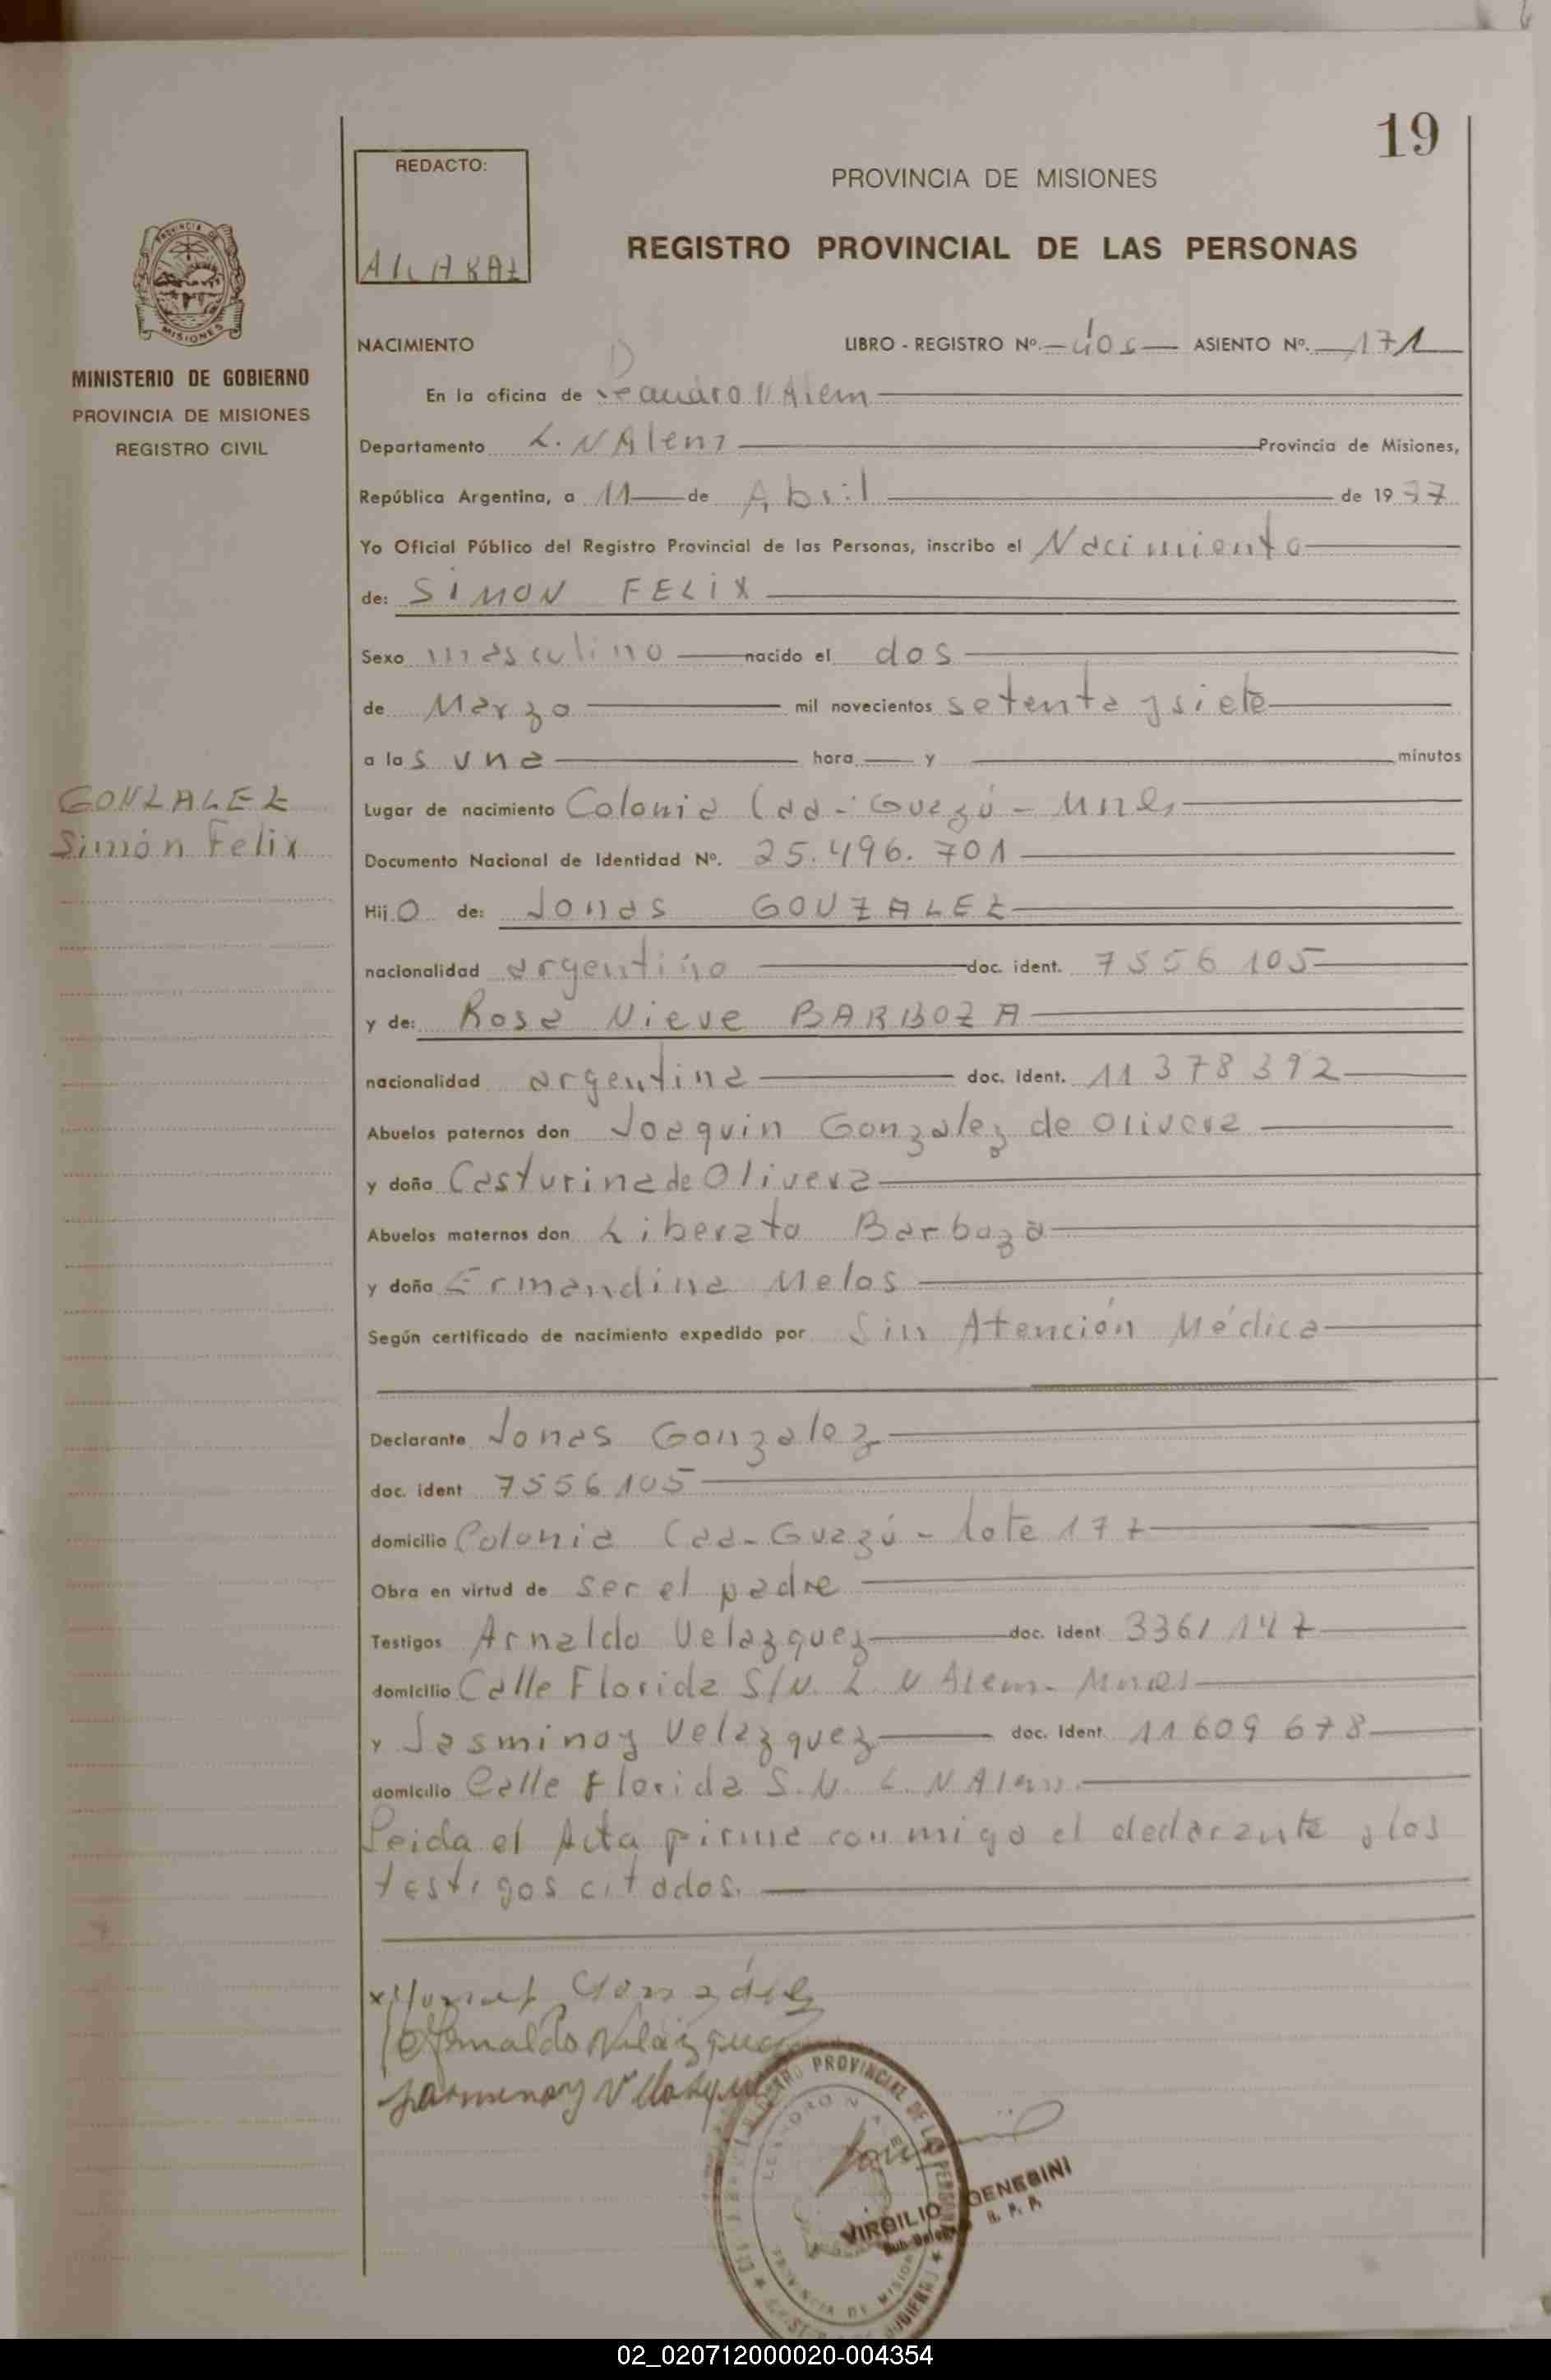 19
REDACTO:
PROVINCIA DE MISIONES
REGISTRO PROVINCIAL DE LAS PERSONAS
MINISTERIO DE GOBIERNO
PROVINCIA DE MISIONES
REGISTRO CIVIL
NACIMIENTO LIBRO - REGISTRO Nº. ASIENTO Nº. 171
En la oficina de Leandro N Alem
Departamento L. N Alem Provincia de Misiones,
República Argentina, a 11 de Abril de 1977
Yo Oficial Público del Registro Provincial de las Personas, inscribo el Nacimiento
de: SIMON FELIX
Sexo masculino nacido el dos
de Marzo mil novecientos setenta y siete
a las una hora y minutos
GONZALEZ
Simón Felix
Lugar de nacimiento Colonia Caa-Guazú - Mnes
Documento Nacional de Identidad Nº. 25.496.701
Hijo de: Jonas GONZALEZ
nacionalidad argentino doc. ident. 7556105
y de: Rosa Nieve BARBOZA
nacionalidad argentina doc. ident. 11378392
Abuelos paternos don Joaquin Gonzalez de Olivera
y doña Casturina de Olivera
Abuelos maternos don Liberato Barboza
y doña Ermandina Melos
Según certificado de nacimiento expedido por Sin Atención Médica
Declarante Jonas Gonzalez
doc. ident 7556105
domicilio Colonia Caa-Guazú - lote 177
Obra en virtud de ser el padre
Testigos Arnaldo Velazquez doc. ident 3361147
domicilio Calle Florida S/N. L. N Alem - Mnes
y Jasminoy Velazquez doc. ident. 11609678
domicilio Calle Florida S.N. L. N Alem.
Leida el Acta firma conmigo el declarante y los
testigos citados.
Arnaldo Velazquez
Jasminoy Velazquez
VIRGILIO GENESINI
Sub-Delegado R. P. P.
02_020712000020-004354